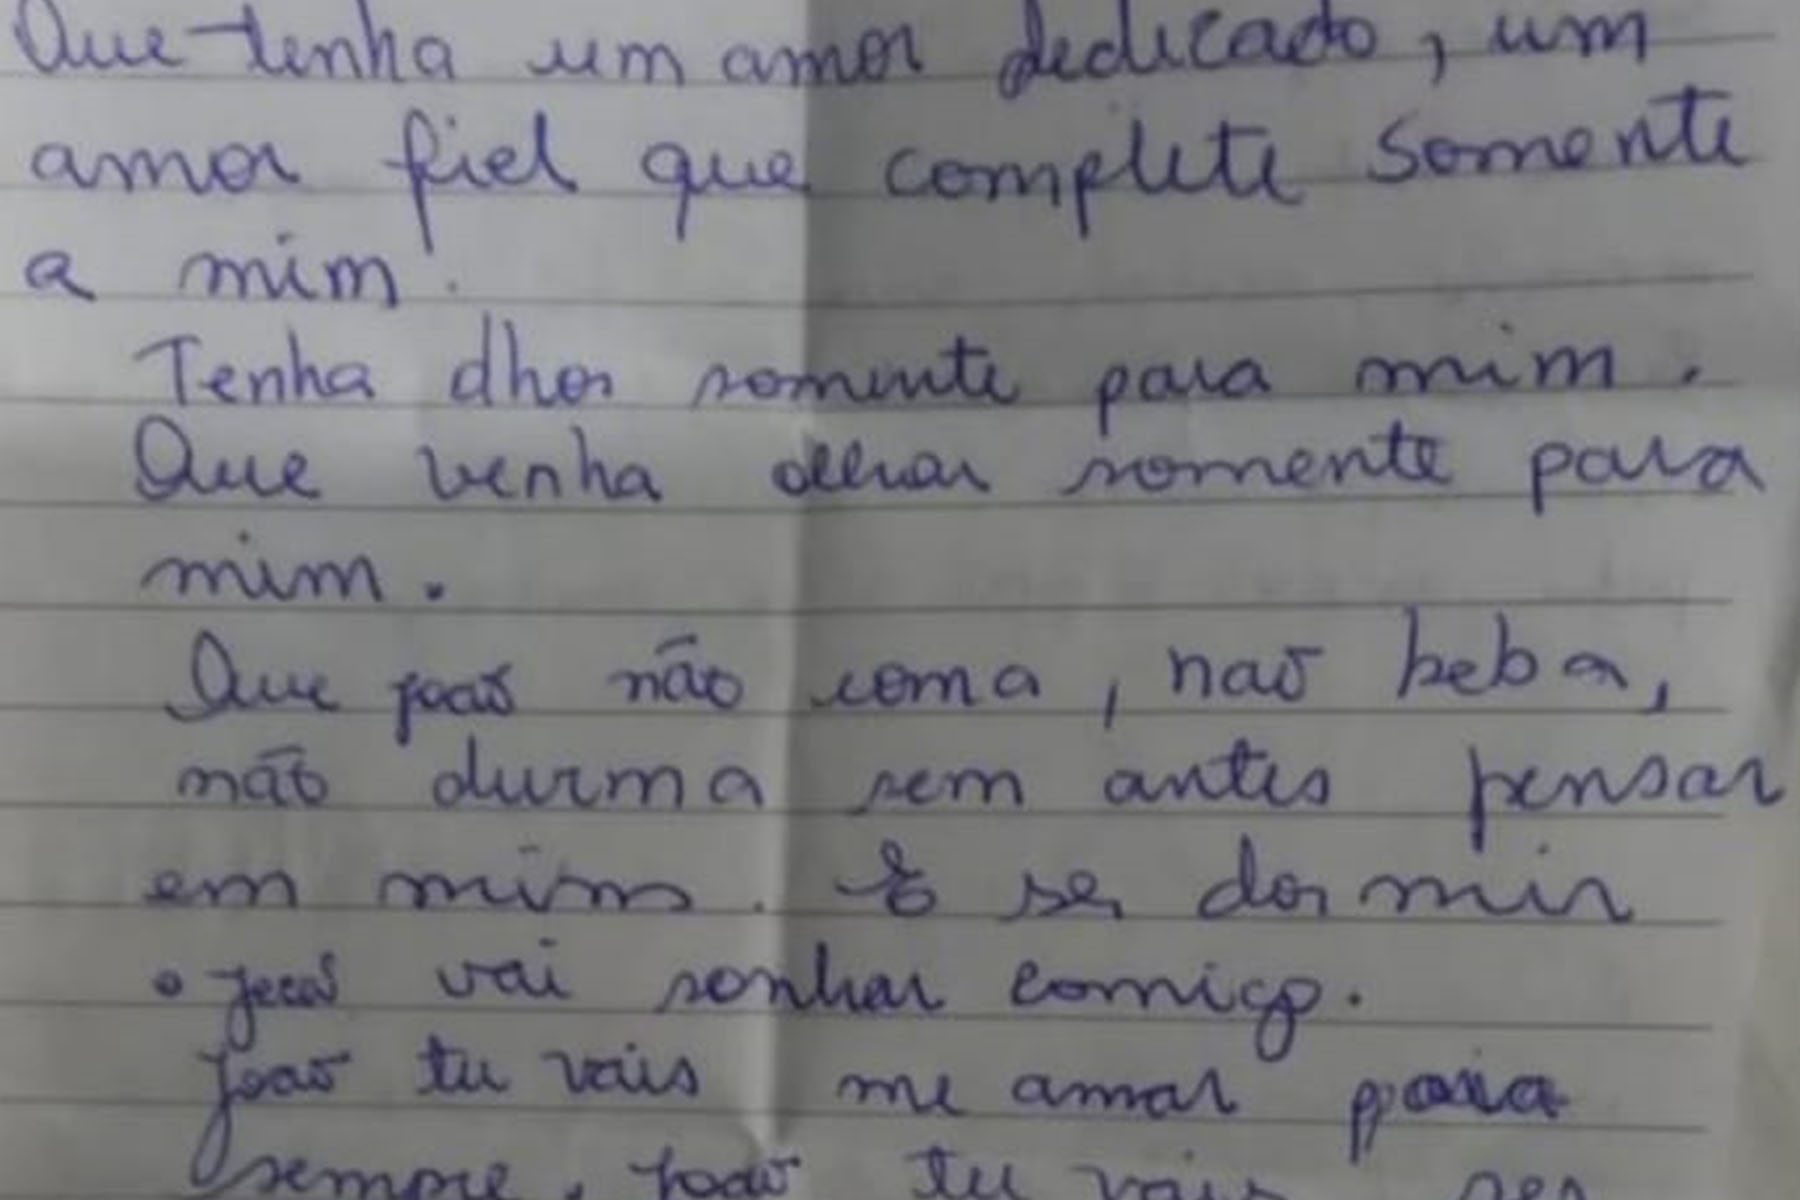 Que tenha um amor dedicado, um
amor fiel que complete somente
a mim.
Tenha olhos somente para mim.
Que venha olhar somente para
mim.
Que joão não coma, não beba,
não durma sem antes pensar
em mim. E se dormir
o joão vai sonhar comigo.
joão tu vais me amar para
sempre, joão tu vais ser